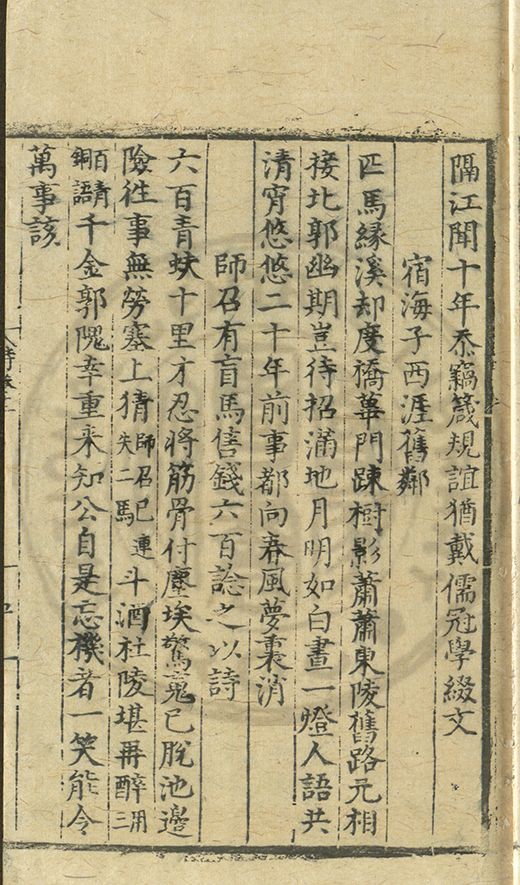 隔江聞十年忝竊箴規誼猶戴儒冠學綴文
宿海子西涯舊鄰
匹馬緣溪却度橋蓽門踈樹影蕭蕭東陵舊路元相
接北郭幽期豈待招滿地月明如白晝一燈人語共
清宵悠悠二十年前事都向春風夢裏消
師召有盲馬售錢六百諗之以詩
六百青蚨十里才忍將筋骨付塵埃驚嵬已脫池邊
險徃事無勞塞上猜師召已連失二馬斗酒杜陵堪再醉用三
百青銅語千金郭隗幸重来知公自是忘機者一笑能令
萬事該